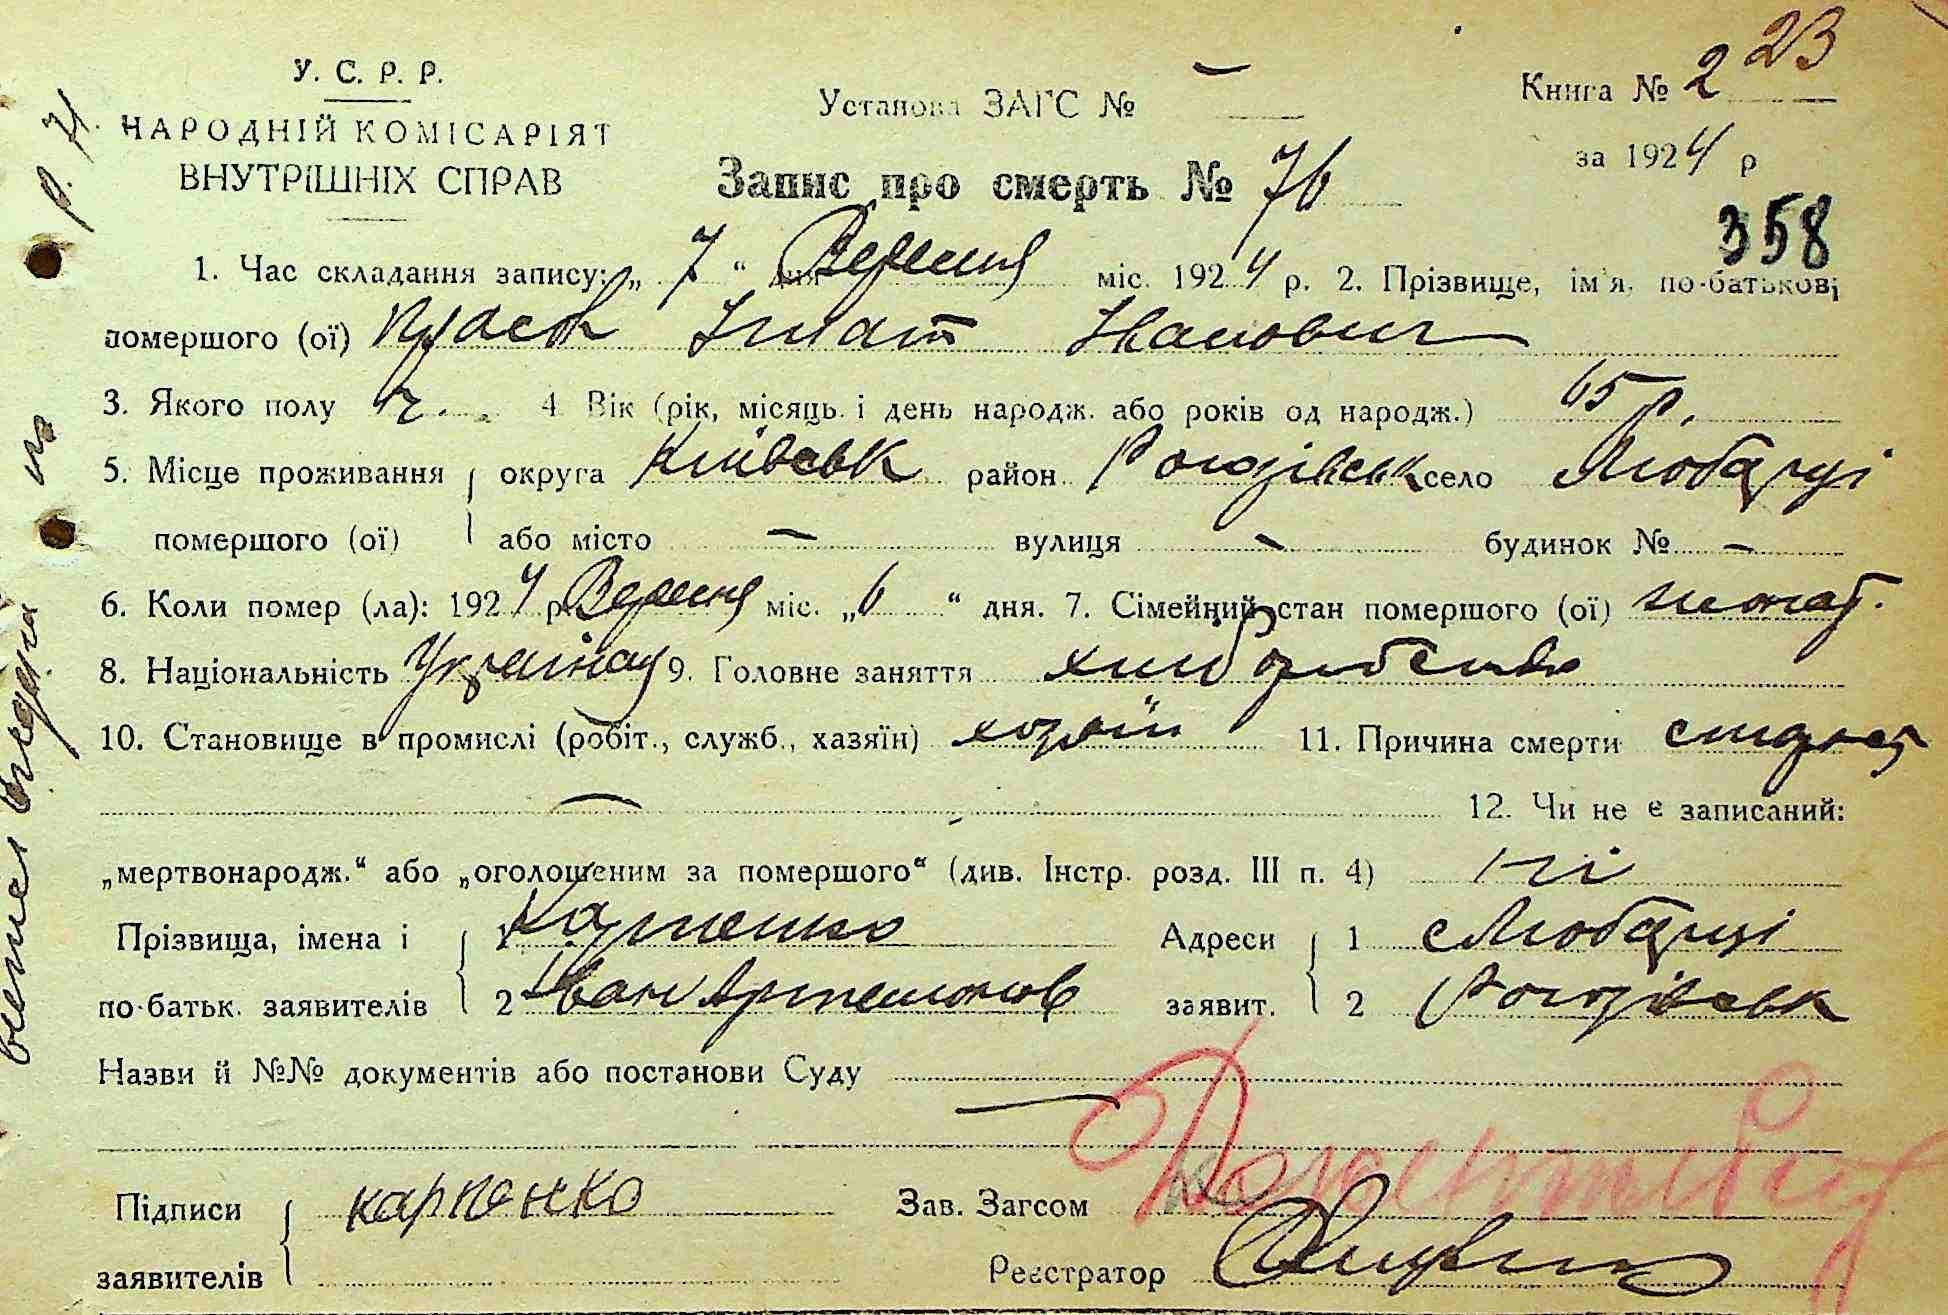 У. С. Р. Р.
НАРОДНІЙ КОМІСАРІЯТ
ВНУТРІШНІХ СПРАВ
Установа ЗАГС № —
Книга № 2 23
за 1924 р
Запис про смерть № 76
358
1. Час складання запису: „ 7 “ дня Вересня міс. 1924 р. 2. Прізвище, ім'я, по-батькові
помершого (ої) Ігнат Іванович
3. Якого полу ч. 4 Вік (рік, місяць і день народж. або років од народж.) 65 р.
5. Місце проживання округа Київськ район Рогозівськ село Любарці
помершого (ої) або місто — вулиця — будинок № —
6. Коли помер (ла): 1924 р. Вересня міс. „6 “ дня. 7. Сімейний стан помершого (ої) женат.
8. Національність 9. Головне заняття хліборобство
10. Становище в промислі (робіт., служб., хазяїн) хозяїн 11. Причина смерти
— 12. Чи не є записаний:
„мертвонародж.“ або „оголошеним за помершого“ (див. Інстр. розд. III п. 4) ні
Прізвища, імена і 1 Карпенко Адреси 1 с Любарці
по-батьк. заявителів 2 Іван заявит. 2 Рогозівськ
Назви й №№ документів або постанови Суду
—
Підписи карпенко Зав. Загсом
заявителів Реєстратор